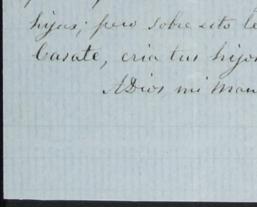 hijas; pero sobre esto le
Casate, cria tus hijos
ADios mi